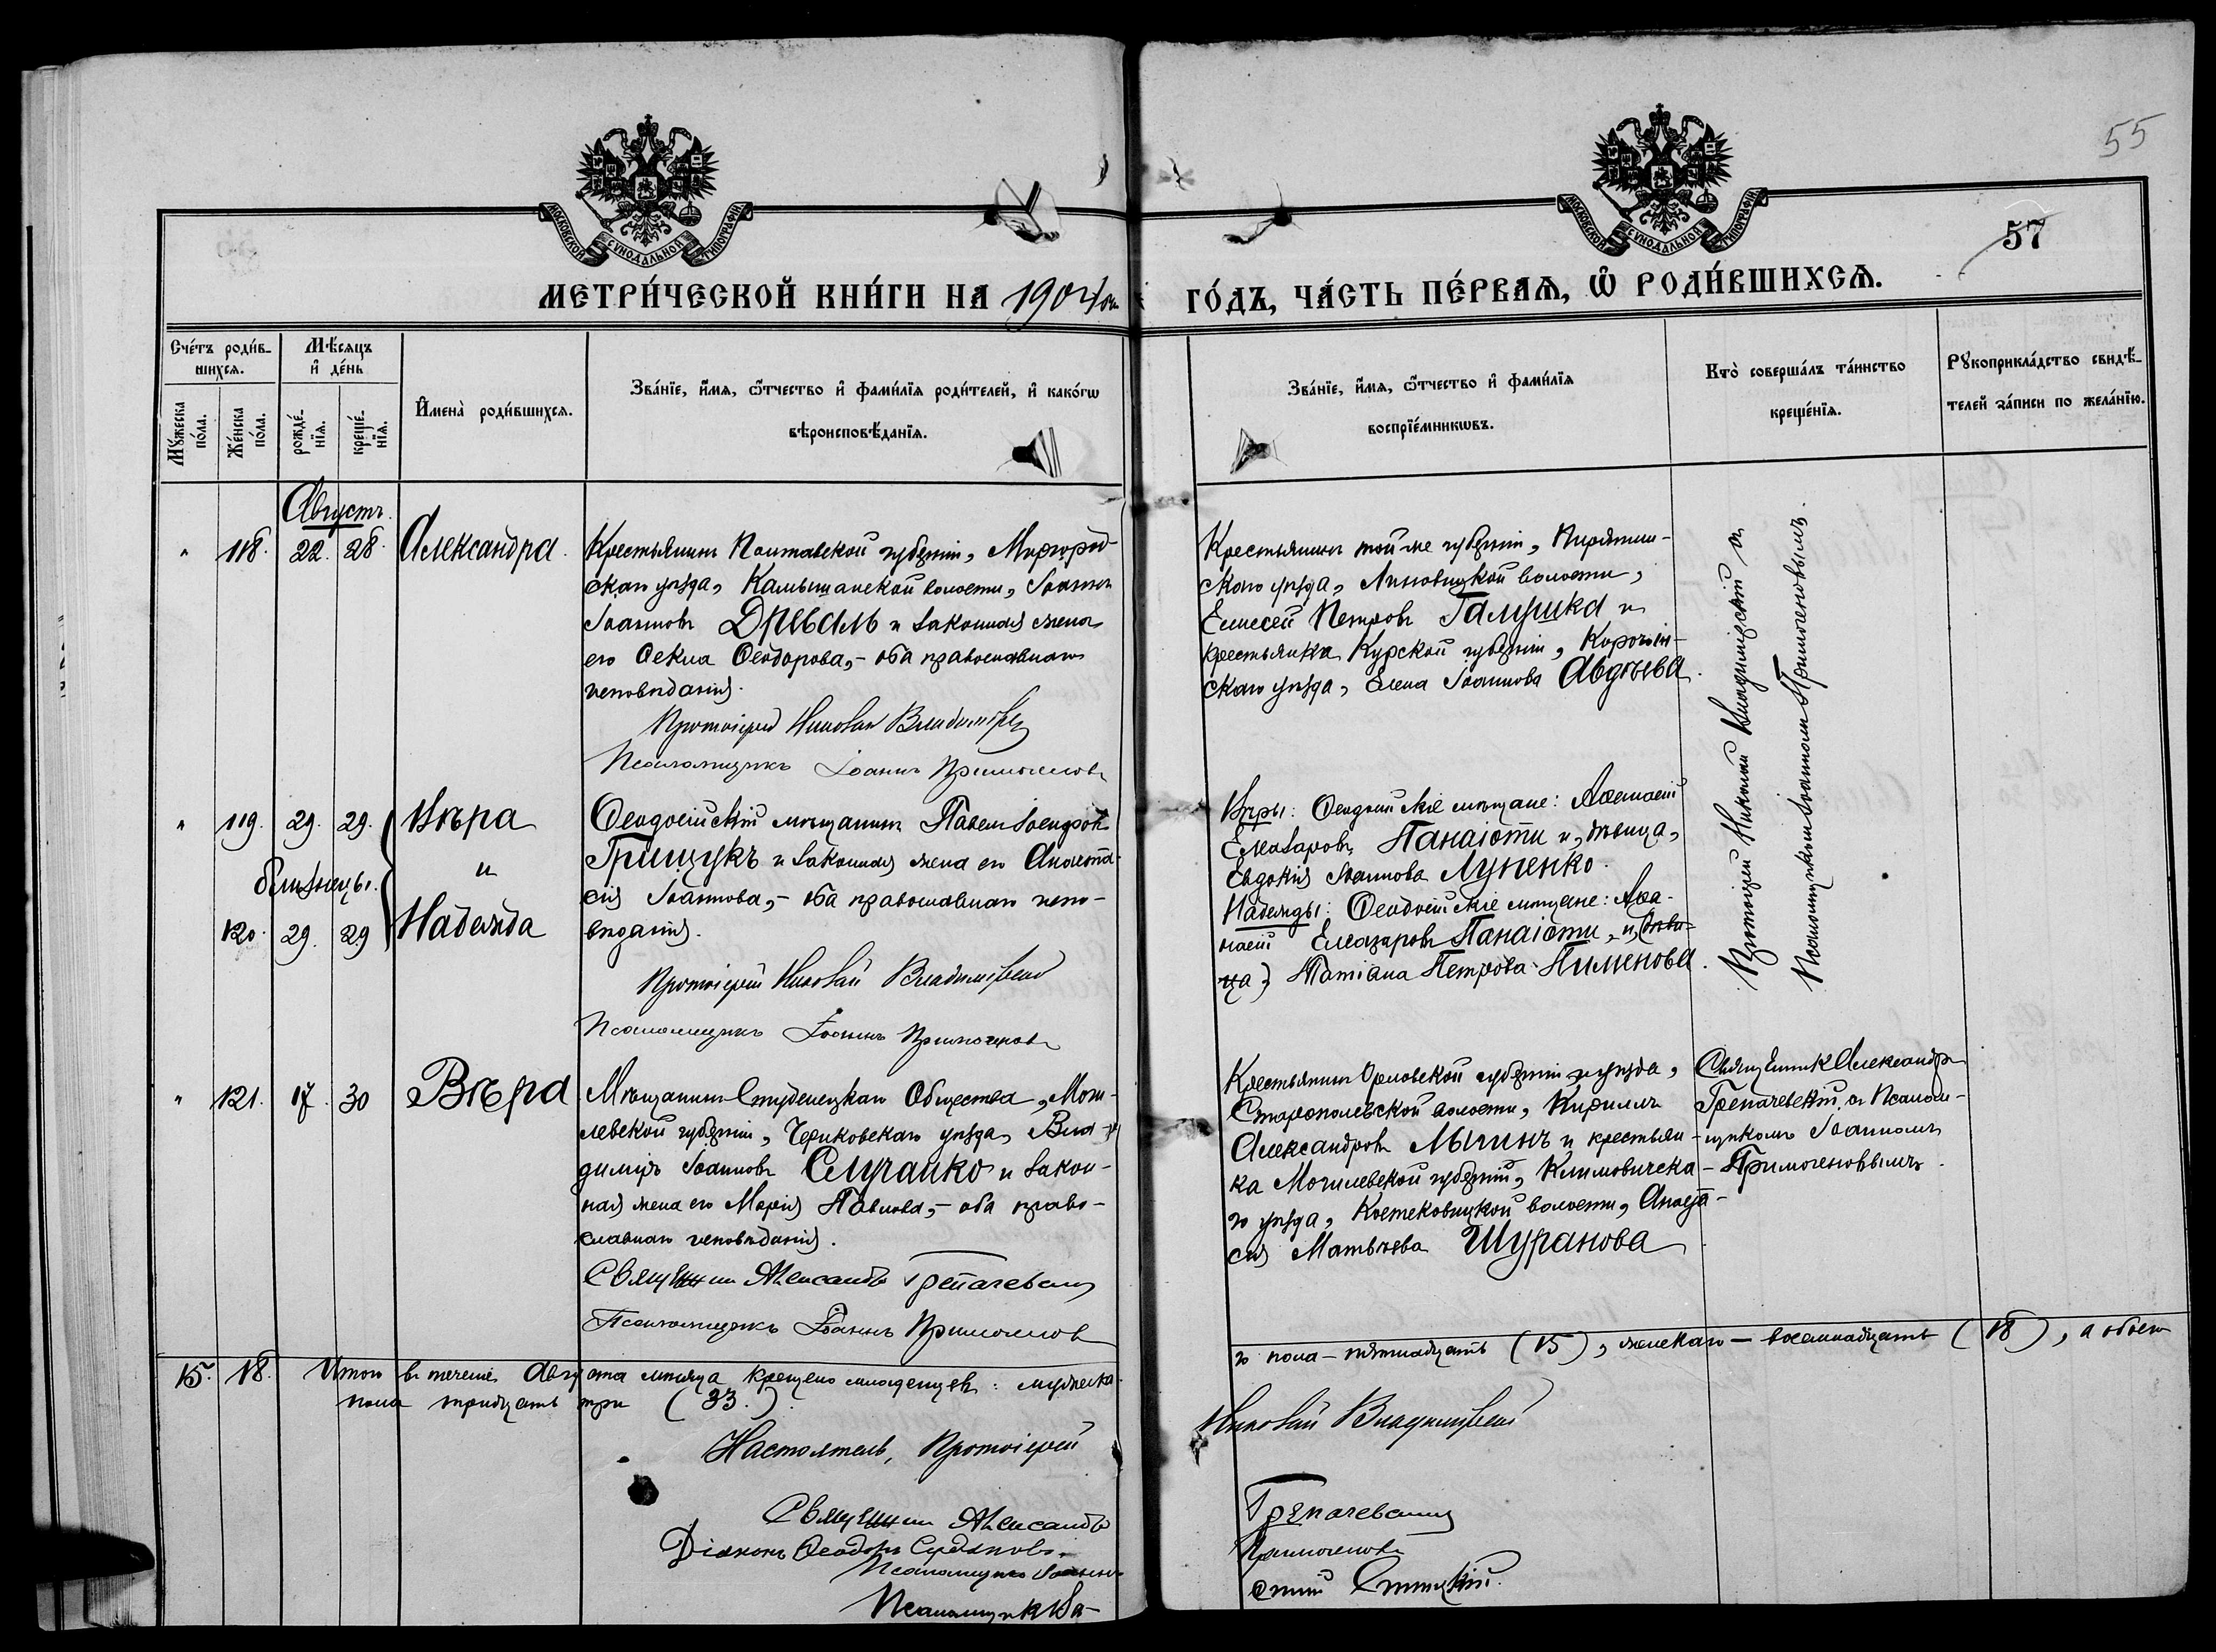 55
57
МОСКОВСКОЙ СѴНОДАЛЬНОЙ ТИПОГРАФІИ
МОСКОВСКОЙ СѴНОДАЛЬНОЙ ТИПОГРАФІИ
МЕТРИ́ЧЕСКОЙ КНИ́ГИ НА 1904 ГО́ДЪ, ЧА́СТЬ ПЕ́РВАЯ, Ѡ РОДИ́ВШИХСЯ.
Сче́тъ роди́в-
шихся.
Мꙋ́жеска
по́ла.
Же́нска
по́ла.
Мѣ́сяцъ
и҆ де́нь
рожде́-
нїя.
креще́-
нїя.
И҆мена̀ роди́вшихся.
Зва́нїе, и҆́мя, ѻ҆́тчество и҆ фами́лїя роди́телей, и҆ како́гѡ
вѣроисповѣ́данїя.
Зва́нїе, и҆́мя, ѻ҆́тчество и҆ фами́лїя
воспрїе́мникѡвъ.
Кто̀ соверша́лъ та́инство
креще́нїя.
Рꙋкоприкла́дство свидѣ́-
телей за́писи по жела́нїю.
Августъ.
" 118. 22. 28. Александра.
Крестьянинъ Полтавской губерніи, Миргород-
скаго уѣзда, Камышанской волости, Іоаннъ
Іоанновъ Дрѣваль и законная жена
его Ѳекла Ѳеодорова, - оба православнаго
исповѣданія.
Протоіерей Николай Владимірскій
Псаломщикъ Іоаннъ Примоченовъ
Крестьянинъ той-же губерніи, Пирятин-
скаго уѣзда, Линовицкой волости,
Елисей Петровъ Галушка и
крестьянка Курской губерніи, Корочан-
скаго уѣзда, Елена Іоаннова Авдѣева.
Протоіерей Николай Владимірскій съ
Псаломщикомъ Іоанномъ Примоченовымъ.
" 119. 29. 29. Вѣра
близнецы. и
120. 29. 29 Надежда
Ѳеодосійскій мѣщанинъ Павелъ
Грищукъ и законная жена его Анаста-
сія Іоаннова, - оба православнаго испо-
вѣданія.
Протоіерей Николай Владимірскій
Псаломщикъ Іоаннъ Примоченовъ
Вѣры: Ѳеодосійскіе мѣщане: Аѳанасій
Елеазаровъ Панаіоти и, дѣвица,
Евдокія Іоаннова Лупенко.
Надежды: Ѳеодосійскіе мѣщане: Аѳа-
насій Елеазаровъ Панаіоти, и, (дѣви-
ца) Татіана Петрова Пименова.
" 121. 17. 30 Вѣра
Мѣщанинъ Студенецкаго Общества, Моги-
левской губерніи, Чериковскаго уѣзда, Вла-
диміръ Іоанновъ Случайко и закон-
ная жена его Марія Павлова, - оба право-
славнаго исповѣданія.
Священникъ Александръ Грепачевскій
Псаломщикъ Іоаннъ Примоченовъ
Крестьянинъ Орловской губерніи и уѣзда,
волости, Кириллъ
Александровъ Мычинъ и крестьян-
ка Могилевской губерніи, Климовичска-
го уѣзда, Костюковицкой волости, Анаста-
сія Матвѣева Шуранова
Священникъ Александръ
Грепачевскій съ Псалом-
щикомъ Іоанномъ
Примоченовымъ.
15. 18. Итого въ теченіе Августа мѣсяца крещено младенцевъ: мужеска-
го пола - пятнадцать (15), женскаго - восемнадцать (18), а обоего
пола тридцать три (33.).
Настоятель, Протоіерей Николай Владимірскій
Священникъ Александръ Грепачевскій
Діаконъ Ѳеодоръ
Псаломщикъ Іоаннъ Примоченовъ
Псаломщикъ